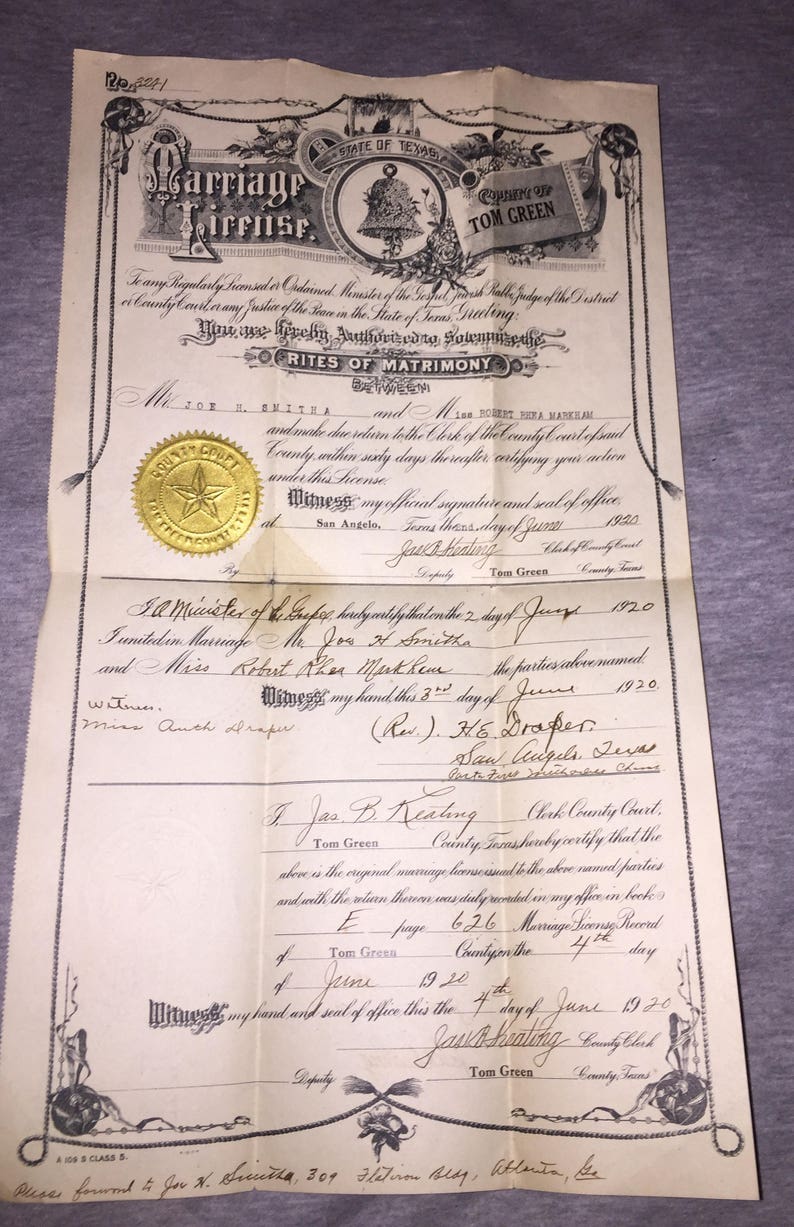 No. 3241
STATE OF TEXAS,
Marriage License.
COUNTY OF
TOM GREEN
To any Regularly Licensed or Ordained Minister of the Gospel, Jewish Rabbi, Judge of the District
or County Court, or any Justice of the Peace in the State of Texas, Greeting:
You are hereby Authorized to Solemnize the
RITES OF MATRIMONY
BETWEEN
Mr. JOE H. SMITHA and Miss ROBERT RHEA MARKHAM
and make due return to the Clerk of the County Court of said
County, within sixty days thereafter, certifying your action
under this License.
Witness my official signature and seal of office,
at San Angelo, Texas the 2nd. day of June 1920
Jas B Keating Clerk of County Court
By Deputy Tom Green County, Texas
COUNTY COURT
TOM GREEN COUNTY, TEXAS
I a Minister of the Gospel hereby certify that on the 2 day of June 1920
I united in Marriage Mr. Joe H Smitha
and Miss Robert Rhea Markham the parties above named.
Witness my hand, this 3rd day of June 1920.
Witness.
Miss Ruth Draper
(Rev.). H.E. Draper.
San Angelo, Texas
First Church
I, Jas. B. Keating Clerk County Court,
Tom Green County, Texas, hereby certify that the
above is the original marriage license issued to the above named parties
and with the return thereon was duly recorded in my office in book
E page 626 Marriage License Record
of Tom Green County, on the 4th day
of June 1920
Witness my hand and seal of office this the 4th day of June 1920
Jas B Keating County Clerk
Deputy Tom Green County, Texas
A 109 S CLASS 5.
Please forward to Joe H. Smitha, 309 Flatiron Bldg, Atlanta, Ga